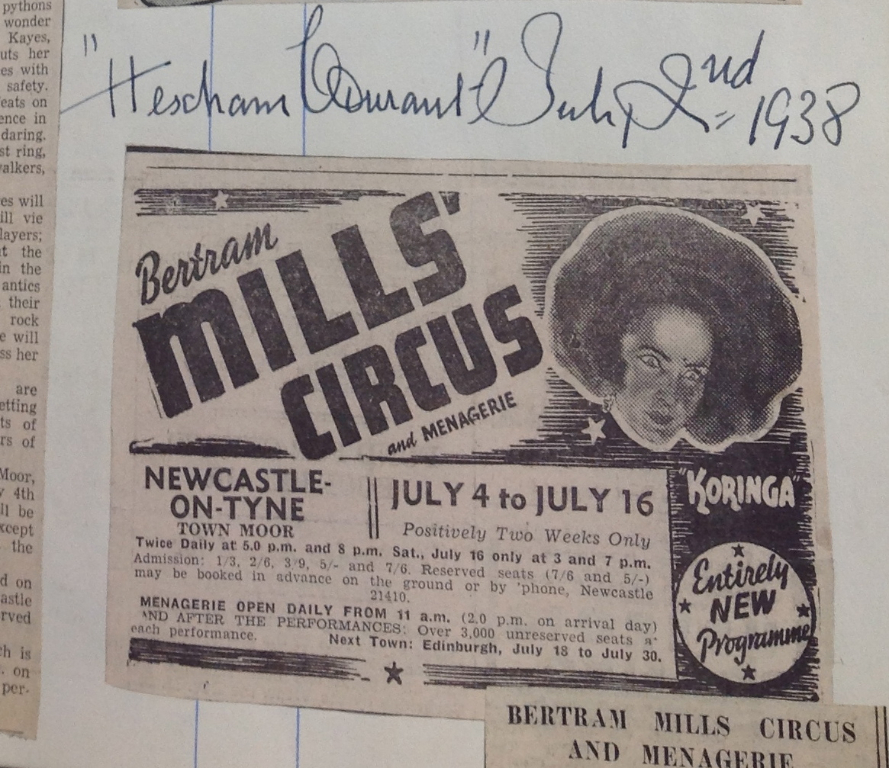 pythons
wonder
Kayes,
uts her
es with
safety.
eats on
ence in
daring.
st ring,
valkers,
es will
ill vie
layers;
t the
in the
antics
their
rock
e will
ss her
are
etting
ts of
rs of
Moor,
y 4th
ll be
xcept
the
d on
astle
rved
ch is
. on
per-
"Hexham Courant" July 2nd 1938
Bertram
MILLS'
CIRCUS
and MENAGERIE
"KORINGA"
NEWCASTLE-
ON-TYNE
TOWN MOOR
JULY 4 to JULY 16
Positively Two Weeks Only
Twice Daily at 5.0 p.m. and 8 p.m. Sat., July 16 only at 3 and 7 p.m.
Admission: 1/3, 2/6, 3/9, 5/- and 7/6. Reserved seats (7/6 and 5/-)
may be booked in advance on the ground or by 'phone, Newcastle
21410.
MENAGERIE OPEN DAILY FROM 11 a.m. (2.0 p.m. on arrival day)
AND AFTER THE PERFORMANCES: Over 3,000 unreserved seats a'
each performance.
Next Town: Edinburgh, July 18 to July 30.
Entirely
NEW
Programme
BERTRAM MILLS CIRCUS
AND MENAGERIE